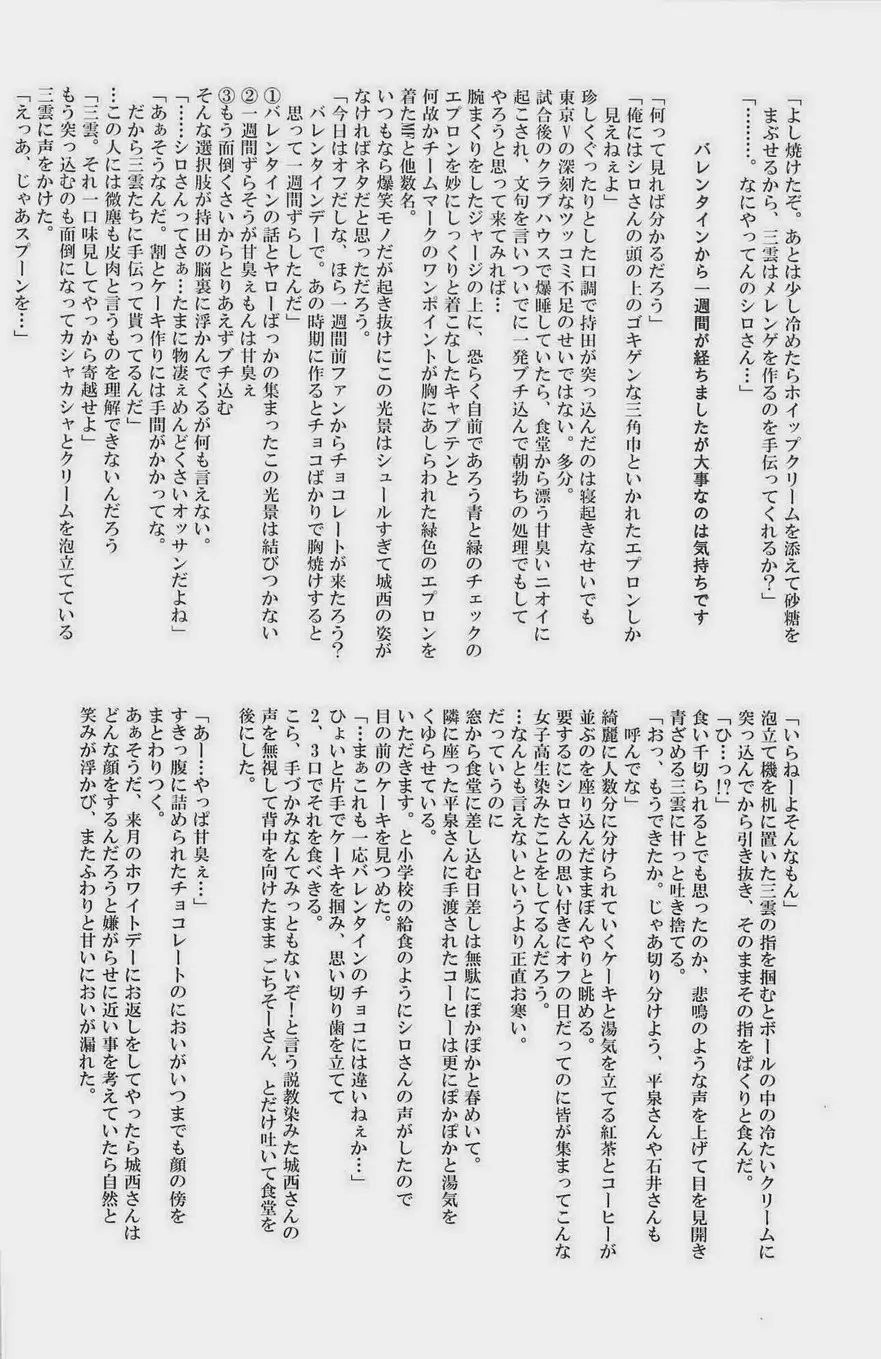 「よし焼けたぞ。あとは少し冷めたらホイップクリームを添えて砂糖を
まぶせるから、三雲はメレンゲを作るのを手伝ってくれるか?」
「………。なにやってんのシロさん…」
バレンタインから一週間が経ちましたが大事なのは気持ちです
「何って見れば分かるだろう」
「俺にはシロさんの頭の上のゴキゲンな三角巾といかれたエプロンしか
見えねぇよ」
珍しくぐったりとした口調で持田が突っ込んだのは寝起きなせいでも
東京Vの深刻なツッコミ不足のせいではない。多分。
試合後のクラブハウスで爆睡していたら、食堂から漂う甘臭いニオイに
起こされ、文句を言いついでに一発ブチ込んで朝勃ちの処理でもして
やろうと思って来てみれば…
腕まくりをしたジャージの上に、恐らく自前であろう青と緑のチェックの
エプロンを妙にしっくりと着こなしたキャプテンと
何故かチームマークのワンポイントが胸にあしらわれた緑色のエプロンを
着たWと他数名。
いつもなら爆笑モノだが起き抜けにこの光景はシュールすぎて城西の姿が
なければネタだと思っただろう。
「今日はオフだしな、ほら一週間前ファンからチョコレートが来たろう?
バレンタインデーで。あの時期に作るとチョコばかりで胸焼けすると
思って一週間ずらしたんだ」
①バレンタインの話とヤローばっかの集まったこの光景は結びつかない
②一週間ずらそうが甘臭ぇもんは甘臭ぇ
③もう面倒くさいからとりあえずブチ込む
そんな選択肢が持田の脳裏に浮かんでくるが何も言えない。
「……シロさんってさぁ…たまに物凄ぇめんどくさいオッサンだよね」
「あぁそうなんだ。割とケーキ作りには手間がかかってな。
だから三雲たちに手伝って貰ってるんだ」
…この人には微塵も皮肉と言うものを理解できないんだろう
「三雲。それ一口味見してやっから寄越せよ」
もう突っ込むのも面倒になってカシャカシャとクリームを泡立てている
三雲に声をかけた。
「えっあ、じゃあスプーンを…」
「いらねーよそんなもん」
泡立て機を机に置いた三雲の指を掴むとボールの中の冷たいクリームに
突っ込んでから引き抜き、そのままその指をぱくりと食んだ。
「ひ…っ!?」
食い千切られるとでも思ったのか、悲鳴のような声を上げて目を見開き
青ざめる三雲に甘っと吐き捨てる。
「おっ、もうできたか。じゃあ切り分けよう、平泉さんや石井さんも
呼んでな」
綺麗に人数分に分けられていくケーキと湯気を立てる紅茶とコーヒーが
並ぶのを座り込んだままぼんやりと眺める。
要するにシロさんの思い付きにオフの日だってのに皆が集まってこんな
女子高生染みたことをしてるんだろう。
…なんとも言えないというより正直お寒い。
だっていうのに
窓から食堂に差し込む日差しは無駄にぽかぽかと春めいて。
隣に座った平泉さんに手渡されたコーヒーは更にぽかぽかと湯気を
くゆらせている。
いただきます。と小学校の給食のようにシロさんの声がしたので
目の前のケーキを見つめた。
「…まぁこれも一応バレンタインのチョコには違いねぇか…」
ひょいと片手でケーキを掴み、思い切り歯を立てて
2、3口でそれを食べきる。
こら、手づかみなんてみっともないぞ!と言う説教染みた城西さんの
声を無視して背中を向けたまま ごちそーさん、とだけ吐いて食堂を
後にした。
「あー…やっぱ甘臭ぇ…」
すきっ腹に詰められたチョコレートのにおいがいつまでも顔の傍を
まとわりつく。
あぁそうだ、来月のホワイトデーにお返しをしてやったら城西さんは
どんな顔をするんだろうと嫌がらせに近い事を考えていたら自然と
笑みが浮かび、またふわりと甘いにおいが漏れた。